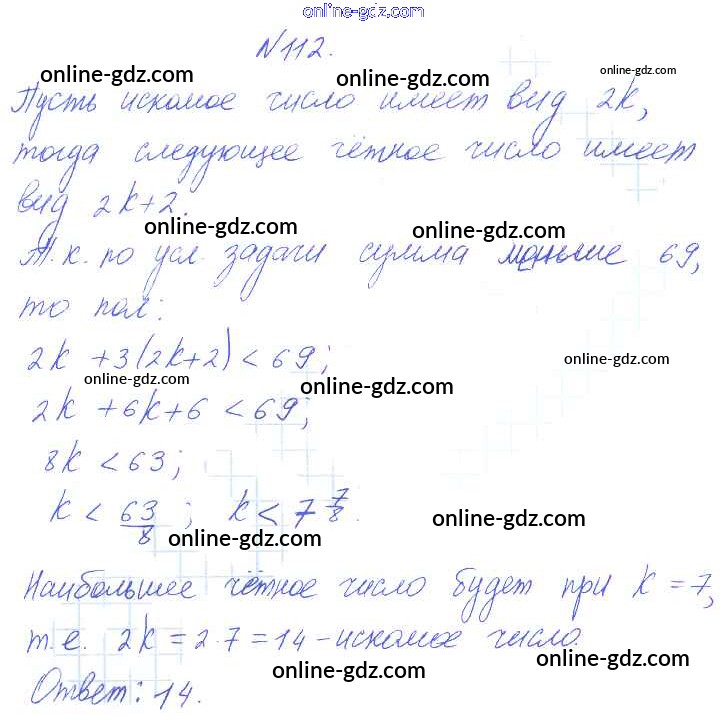 online-gdz.com
N112.
online-gdz.com online-gdz.com online-gdz.com
Пусть искомое число имеет вид 2k,
тогда следующее чётное число имеет
вид 2k+2.
online-gdz.com online-gdz.com
Т.к. по усл. задачи сумма меньше 69,
то пол:
2k +3(2k+2) < 69;
online-gdz.com online-gdz.com online-gdz.com
2k +6k+6 < 69;
8k < 63;
k < 63/8 ; k < 7 7/8.
online-gdz.com online-gdz.com
Наибольшее чётное число будет при k = 7,
т.е. 2k = 2·7 = 14 – искомое число.
online-gdz.com online-gdz.com
Ответ: 14.